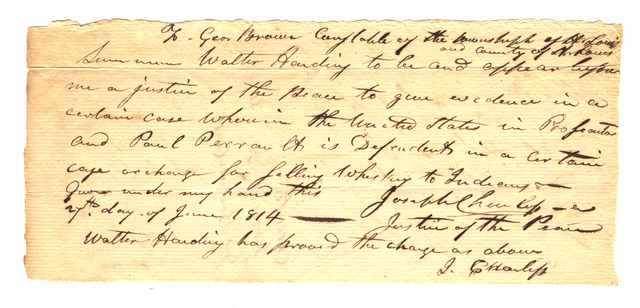 To Geo Brown Constable of the township of St Louis
and County of St Louis
Summon Walter Harding to be and appear before
me a justin of the peace to give evidence in a
certain case wherein the United States in Prosecutor
and Paul Perrault is Defendent in a certain
case or charge for selling Whiskey to Indians
Given under my hand this Joseph Charless
27th. day of June 1814 — Justin of the Peace
Walter Harding has proved the charge as above
J. Charless